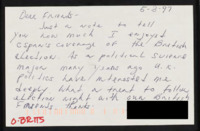 5-2-97
Dear Friends-
Just a note to tell
you how much I enjoyed
Cspan's coverage of the British
election. As a political science
major many years ago U.K.
politics have interested me
deeply. What a treat to follow
election night with our British
Friends. Thanks.
O-BR115